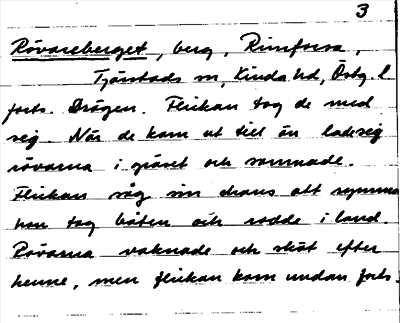 3
Rövareberget, berg, Rimforsa,
Tjärstads sn, Kinda hd, Östg. l
forts. Drögen. Flickan tog de med
sig. När de kom ut till ön lade sig
rövarna i gräset och somnade.
Flickan såg sin chans att rymma
hon tog båten och rodde i land.
Rövarna vaknade och sköt efter
henne, men flickan kom undan forts.